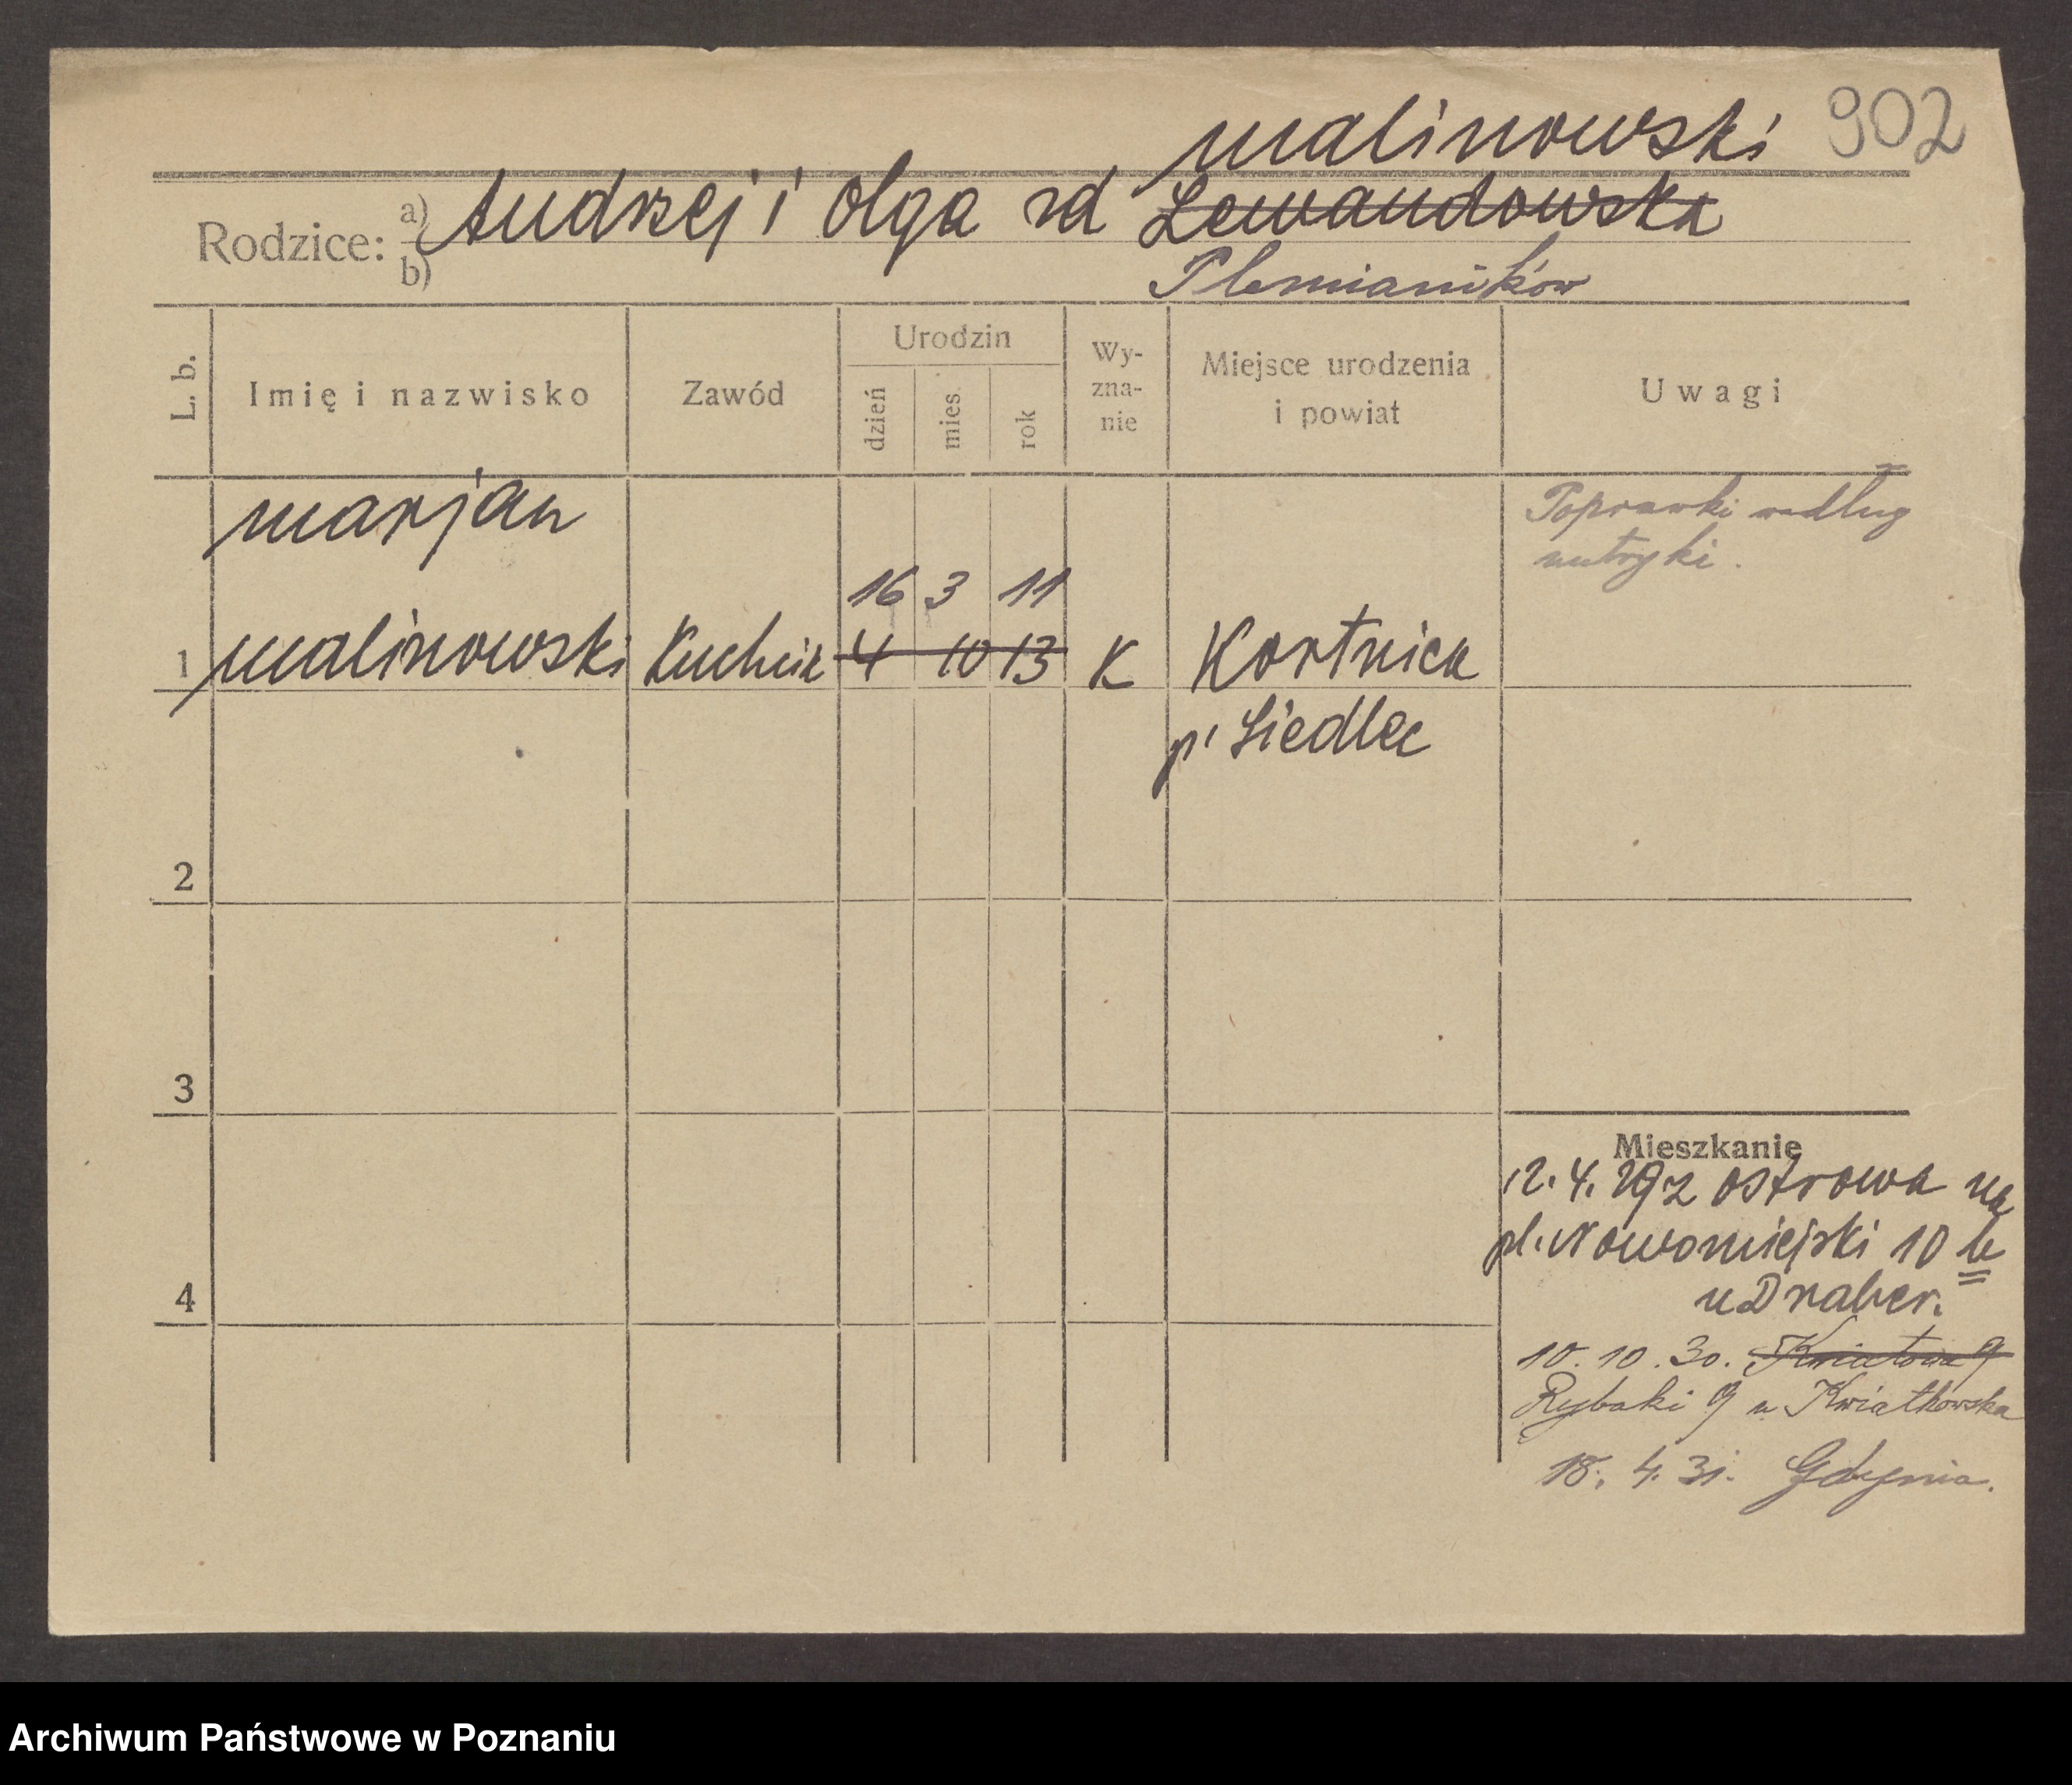 malinowski 902
Rodzice: a) Andrzej i Olga zd Lewandowska
b) Plemianików
L. b. Imię i nazwisko Zawód Urodzin dzień mies. rok Wy-zna-nie Miejsce urodzenia i powiat Uwagi
marjan Poprawki według
metryki.
16 3 11
1 malinowski Kuchcik 4 10 13 K Kortnica
p. Siedlec
2
3
Mieszkanie
12. 4. 29 z Ostrowa na
pl. Nowomiejski 10 b
4 u Draber.
10. 10. 30. Kwiatowa 9
Rybaki 9 u Kwiatkowska
18. 4. 31. Gdynia.
Archiwum Państwowe w Poznaniu